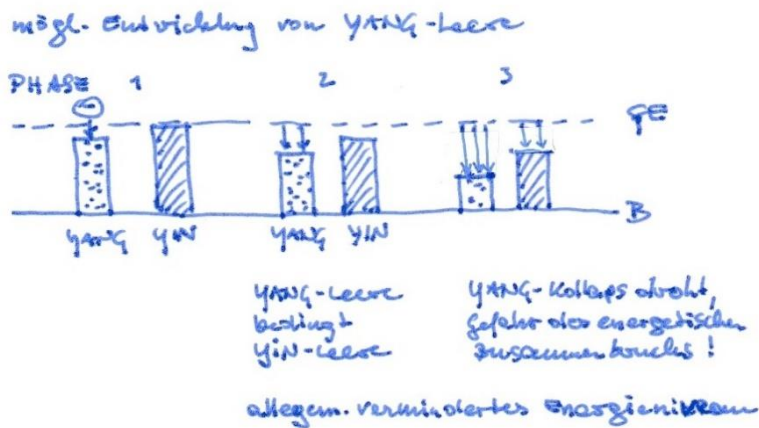 mögl. Entwicklung von YANG-Leere
PHASE 1 2 3
GE
B
YANG YIN YANG YIN
YANG-Leere
bedingt
YIN-Leere
YANG-Kollaps droht,
Gefahr des energetischen
Zusammenbruchs!
allegem. vermindertes Energieniveau